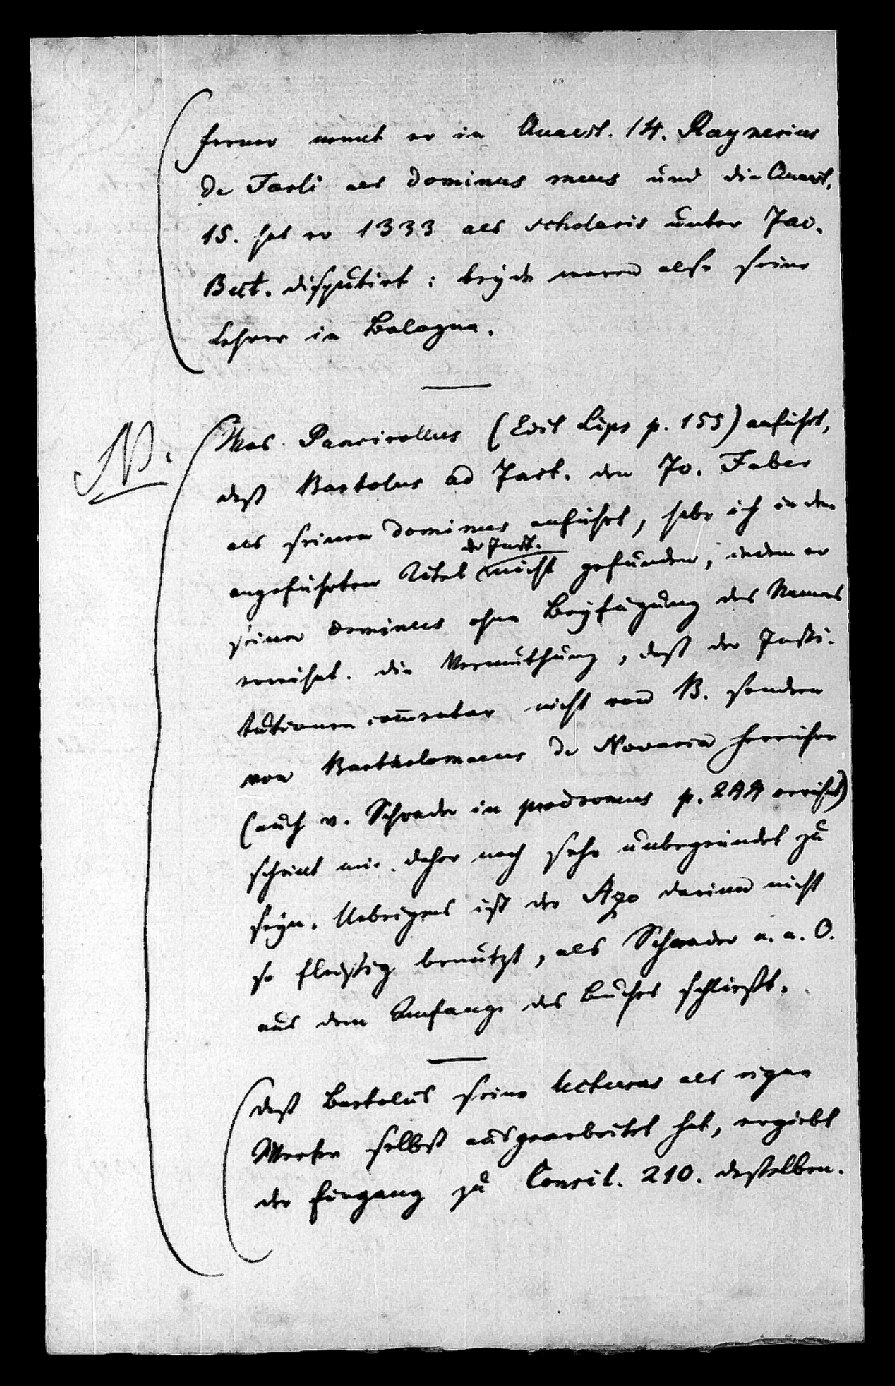 ferner nennt er in Quaest. 14. Raynerius
de Forli als dominus meus und die Quaest.
15. hat er 1333 als scholaris unter Jac.
But. disputirt: beyde waren also seine
Lehrer in Bologna.
NB.
Was Pancirollus (Edit Lips p. 155) anführt,
daß Bartolus ad Inst. den Jo. Faber
als seinen dominus anführt, habe ich in den
der Inst.
angeführten Titel nicht gefunden, indem er
seinen dominus ohne Beyfügung des Namens
erwähnt. die Vermuthung, daß der Insti-
tutionen commentar nicht von B. sondern
von Bartholomaeus de Novaria herrühre
(auch v. Schrader in prodromus p. 244 erwähnt)
scheint mir daher noch sehr unbegründet zu
seyn. Uebrigens ist der Azo darinn nicht
so fleißig benutzt, als Schrader a. a. O.
aus dem Anfange des Buches schließt.
daß Bartolus seine lecturas als eigne
Werke selbst ausgearbeitet hat, ergiebt
der Eingang zu Consil. 210. desselben.